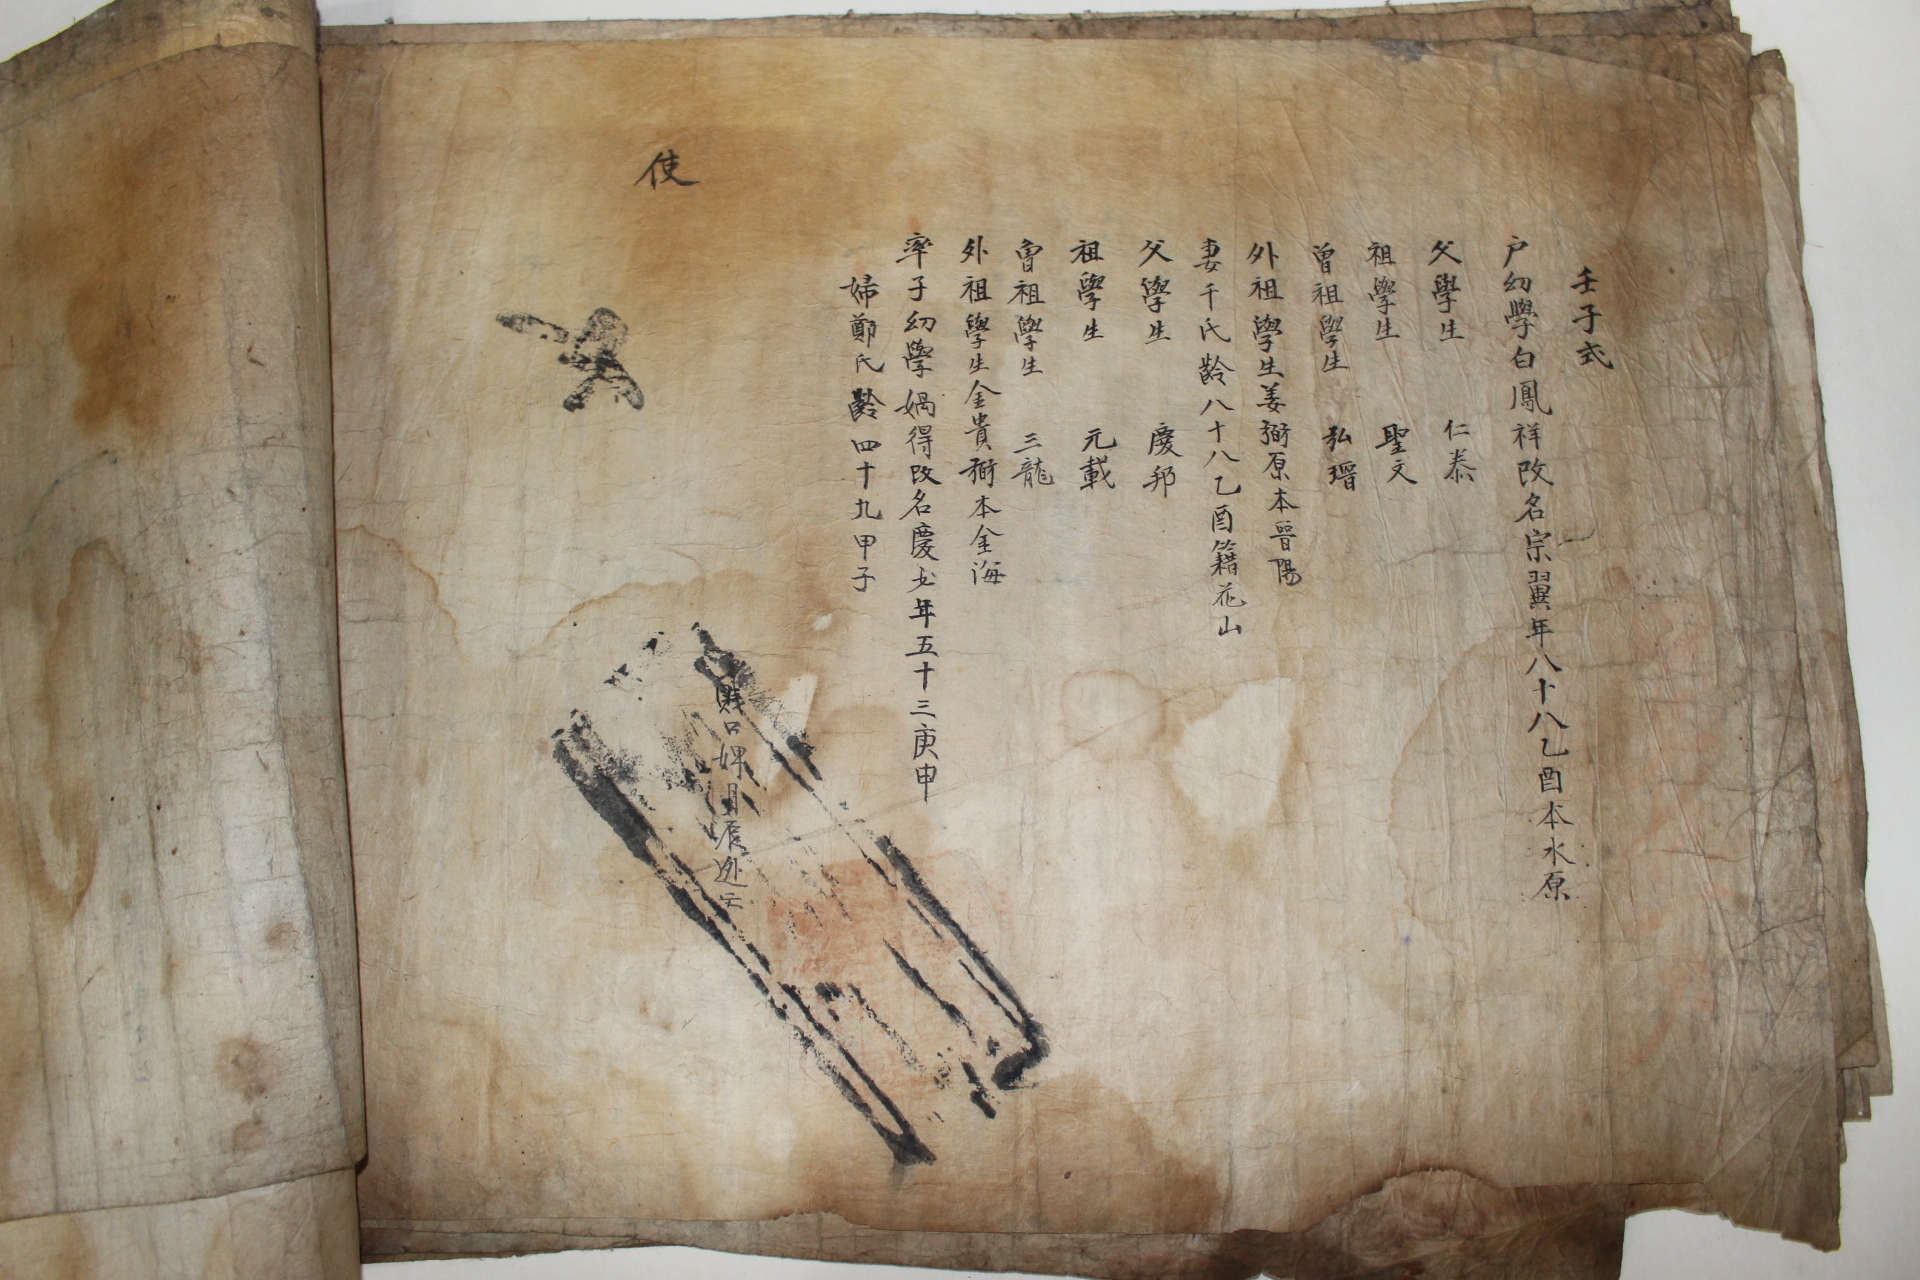 壬子式
户幼學白鳳祥改名宗翼年八十八乙酉本水原
父學生 仁泰
祖學生 聖文
曾祖學生 弘瑨
外祖學生姜弼原本晉陽
妻千氏齡八十八乙酉籍花山
父學生 慶邦
祖學生 元載
曾祖學生 三龍
外祖學生金貴弼本金海
率子幼學 得改名慶 年五十三庚申
婦鄭氏齡四十九甲子
賤口婢月 逃亡
使